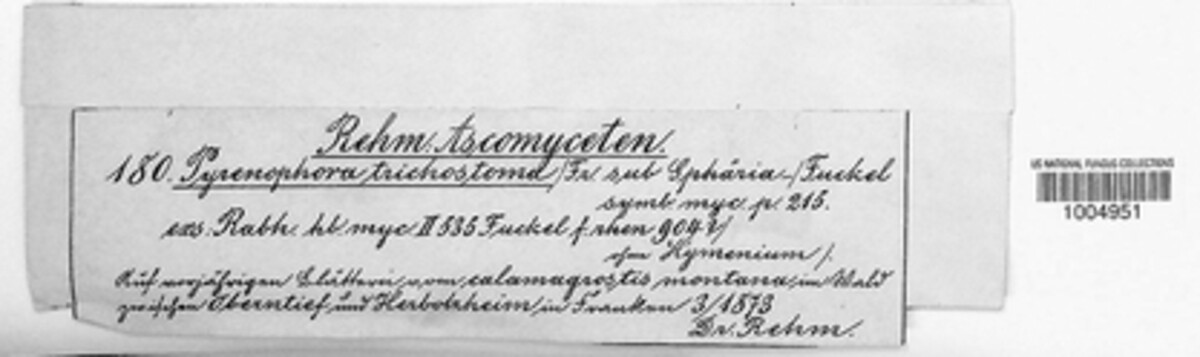 Rehm. Ascomyceten.
180. Pyrenophora trichostoma /Fr. sub Sphäria-/ Fuckel
symb. myc. p. 215.
exs. Rabh. hb. myc. II 535 Fuckel f. rhen 904 /
ohne Hymenium /.
Auf vorjährigen Blättern von calamagrostis montana im Wald
zwischen Oberntief und Herbolzheim in Franken 3/1873
Dr. Rehm.
US NATIONAL FUNGUS COLLECTIONS
1004951